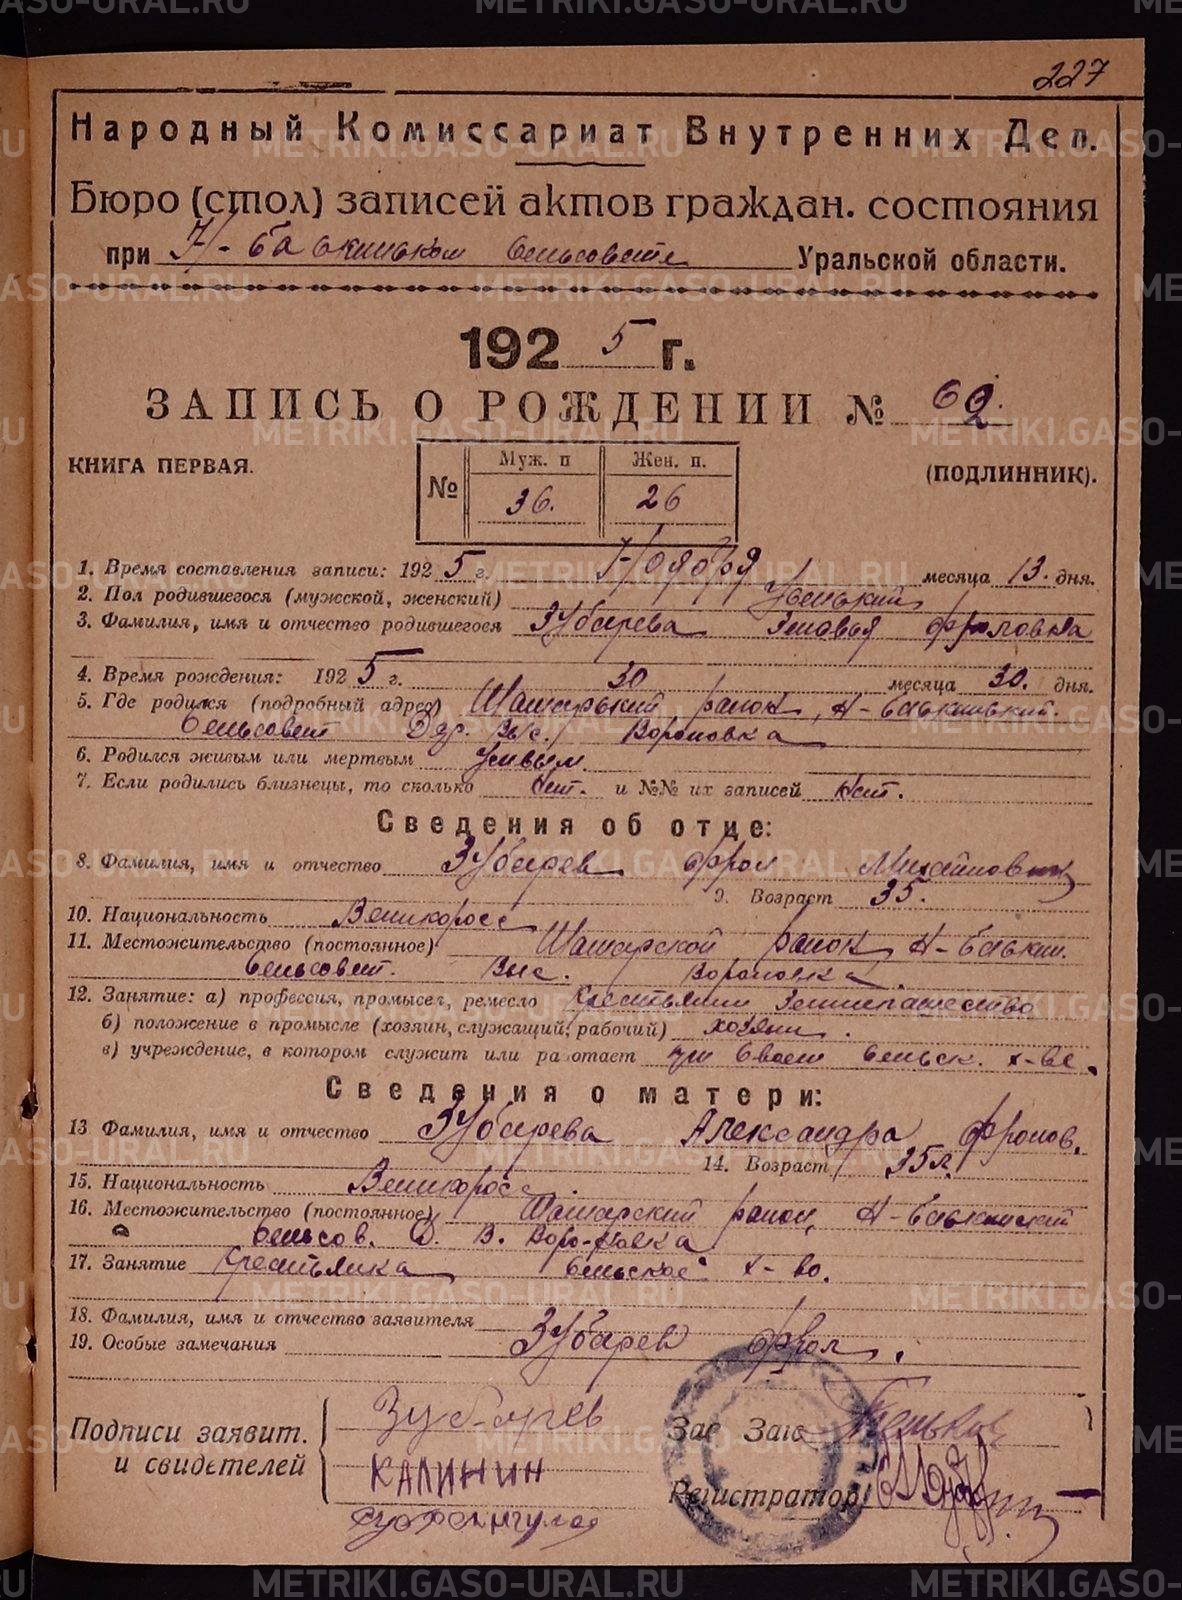 227
Народный Комиссариат Внутренних Дел.
Бюро (стол) записей актов граждан. состояния
при Н-бабкинском сельсовете Уральской области.
1925 г.
ЗАПИСЬ О РОЖДЕНИИ № 62.
КНИГА ПЕРВАЯ. (ПОДЛИННИК).
№ Муж. п Жен. п.
36. 26
1. Время составления записи: 1925 г. Ноября месяца 13. дня.
2. Пол родившегося (мужской, женский) Женский
3. Фамилия, имя и отчество родившегося Зубарева Зиновья Фроловна
4. Время рождения: 1925 г. 30 месяца 30. дня.
5. Где родился (подробный адрес) район, Н-Бабкинский.
Сельсовет Дер. Выс. Вороновка
6. Родился живым или мертвым Живым.
7. Если родились близнецы, то сколько Нет. и №№ их записей Нет.
Сведения об отце:
8. Фамилия, имя и отчество Зубарев Фрол Михайлович
9. Возраст 35.
10. Национальность Великоросс
11. Местожительство (постоянное) район Н-Бабкин.
Сельсовет. Выс. Вороновка.
12. Занятие: а) профессия, промысел, ремесло Крестьянин
б) положение в промысле (хозяин, служащий, рабочий) хозяин.
в) учреждение, в котором служит или работает при своем сельск. х-ве.
Сведения о матери:
13 Фамилия, имя и отчество Зубарева Александра Фролов.
14. Возраст 35 л.
15. Национальность Великоросс.
16. Местожительство (постоянное) район, Н-Бабкинский
Сельсов. Д. В. Вороновка
17. Занятие Крестьянка сельское х-во.
18. Фамилия, имя и отчество заявителя
19. Особые замечания Зубарев Фрол.
Подписи заявит.
и свидетелей
Зубарев
КАЛИНИН
Зав Загс
Регистратор
METRIKI.GASO-URAL.RU